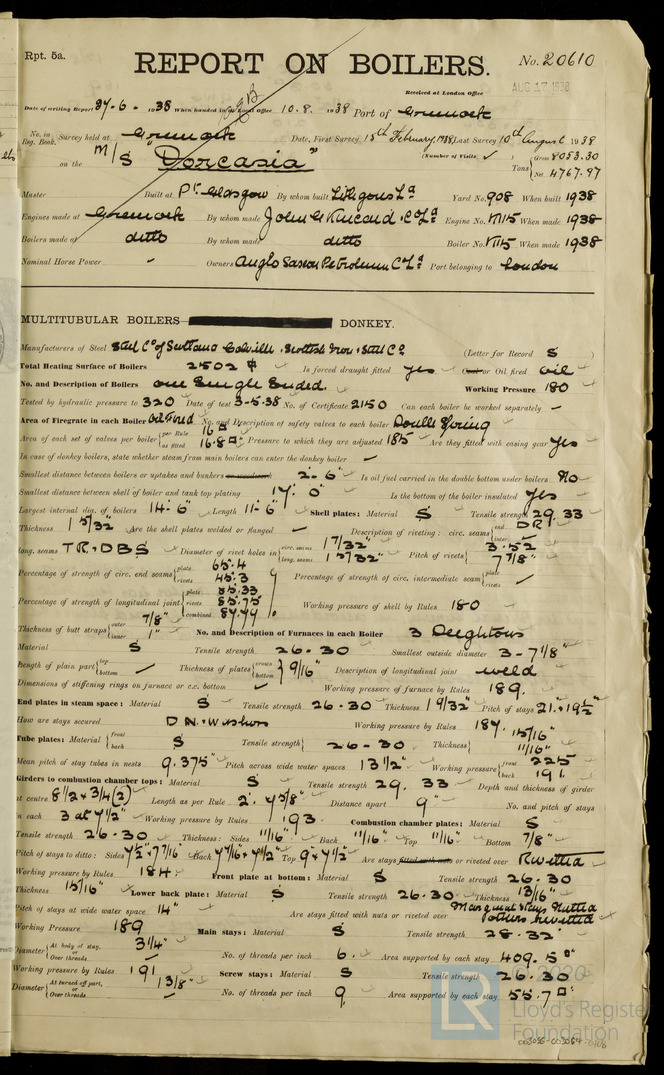 Rpt. 5a.
REPORT ON BOILERS.
No. 20610
Received at London Office
AUG 17 1938
Date of writing Report 27-6-1938 When handed in at Local Office 10.8.1938 Port of Greenock
No. in Reg. Book. Survey held at Greenock Date, First Survey 15th February, 1938 Last Survey 10th August 1938
on the M/S "Dorcasia" (Number of Visits ✓ ) Tons { Gross 8053.30
Net 4767.97
Master Built at Pt. Glasgow By whom built Lithgows Ld Yard No. 908 When built 1938
Engines made at Greenock By whom made John G Kincaid & Co Ld Engine No. When made 1938
Boilers made at ditto By whom made ditto Boiler No. When made 1938
Nominal Horse Power Owners Anglo Saxon Petroleum Co Ld Port belonging to London
MULTITUBULAR BOILERS DONKEY.
Manufacturers of Steel Steel Co of Scotland Colville. Scottish Iron & Steel Co (Letter for Record S )
Total Heating Surface of Boilers 2502 Is forced draught fitted yes Coal or Oil fired oil
No. and Description of Boilers one Single Ended. Working Pressure 180
Tested by hydraulic pressure to 320 Date of test 3-5-38 No. of Certificate 2150 Can each boiler be worked separately
Area of Firegrate in each Boiler Oil Fired No. and Description of safety valves to each boiler Double Spring
Area of each set of valves per boiler { per Rule 16
as fitted 16.8 Pressure to which they are adjusted 185 Are they fitted with easing gear yes
In case of donkey boilers, state whether steam from main boilers can enter the donkey boiler
Smallest distance between boilers or uptakes and bunkers or woodwork 2'-6" Is oil fuel carried in the double bottom under boilers No
Smallest distance between shell of boiler and tank top plating 17'-0" Is the bottom of the boiler insulated yes
Largest internal dia. of boilers 14'-6" Length 11'-6" Shell plates: Material S Tensile strength 29.33
Thickness 1 5/32" Are the shell plates welded or flanged Description of riveting: circ. seams { end DR
inter.
long. seams TR. DBS Diameter of rivet holes in { circ. seams 1 7/32"
long. seams Pitch of rivets { 3.52
7 7/8"
Percentage of strength of circ. end seams { plate 65.4
rivets 45.3 Percentage of strength of circ. intermediate seam { plate
rivets
Percentage of strength of longitudinal joint { plate 85.33
rivets 85.75
combined Working pressure of shell by Rules 180
Thickness of butt straps { outer 7/8"
inner 1" No. and Description of Furnaces in each Boiler 3 Deightons
Material S Tensile strength 26.30 Smallest outside diameter 3-7 1/8"
Length of plain part { top
bottom Thickness of plates { crown
bottom } 9/16" Description of longitudinal joint weld
Dimensions of stiffening rings on furnace or c.c. bottom Working pressure of furnace by Rules 189.
End plates in steam space: Material S Tensile strength 26.30 Thickness 1 9/32" Pitch of stays 21 × 19 1/2"
How are stays secured D.N. & Washers Working pressure by Rules 184.
Tube plates: Material { front
back S Tensile strength { 26-30 Thickness { 15/16"
11/16"
Mean pitch of stay tubes in nests 9.375" Pitch across wide water spaces 13 1/2" Working pressure { front 225
back 191.
Girders to combustion chamber tops: Material S Tensile strength 29. 33 Depth and thickness of girder
at centre 8 1/2 × 3/4 (2) Length as per Rule Distance apart 9" No. and pitch of stays
in each 3 at 7 1/2" Working pressure by Rules 193 Combustion chamber plates: Material S
Tensile strength 26.30 Thickness: Sides 11/16" Back 11/16" Top 11/16" Bottom 7/8"
Pitch of stays to ditto: Sides Back Top 9 × 7 1/2" Are stays fitted with nuts or riveted over Rivetted
Working pressure by Rules 184. Front plate at bottom: Material S Tensile strength 26.30
Thickness 15/16" Lower back plate: Material S Tensile strength 26.30 Thickness 13/16"
Pitch of stays at wide water space 14" Are stays fitted with nuts or riveted over Marginal stays Nutted
others rivetted
Working Pressure 189 Main stays: Material S Tensile strength 28.32
Diameter { At body of stay, 3 1/4"
or
Over threads No. of threads per inch 6. Area supported by each stay 409.5
Working pressure by Rules 191 Screw stays: Material S Tensile strength 26.30
Diameter { At turned off part, 1 3/8"
or
Over threads No. of threads per inch 9 Area supported by each stay 55.7
© 2020
LR Lloyd's Register
Foundation